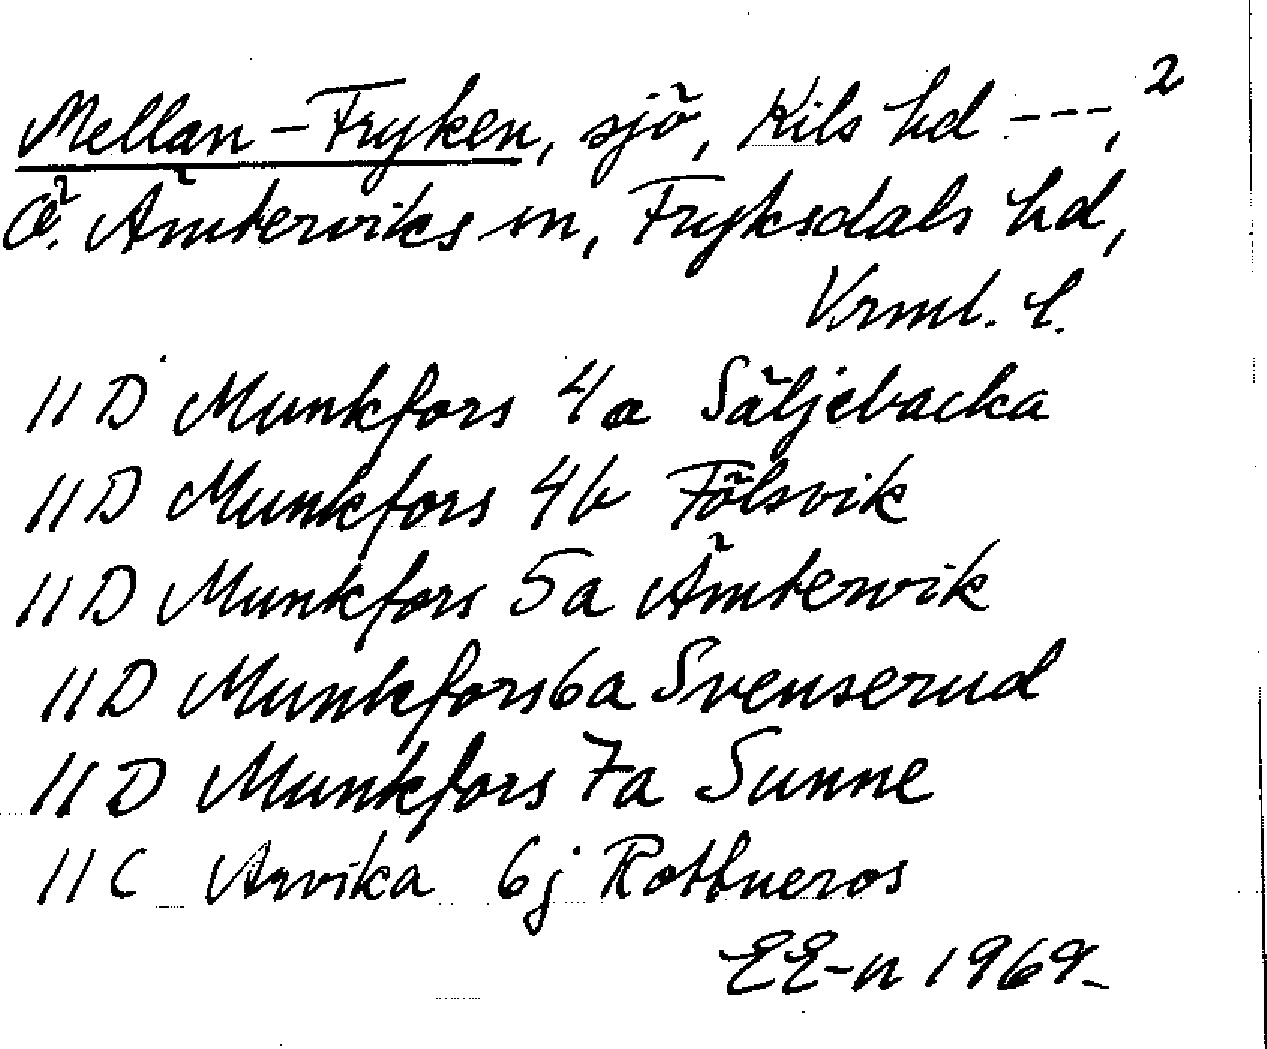 Mellan-Fryken, sjö, Kils hd ---, 2
Ö. Ämterviks sn, Fryksdals hd,
Vrml. l.
11 D Munkfors 4a Säljebacka
11 D Munkfors 4b Fölsvik
11 D Munkfors 5a Ämtervik
11 D Munkfors 6a Svenserud
11 D Munkfors 7a Sunne
11 C Arvika 6j Rottneros
EE-n 1969